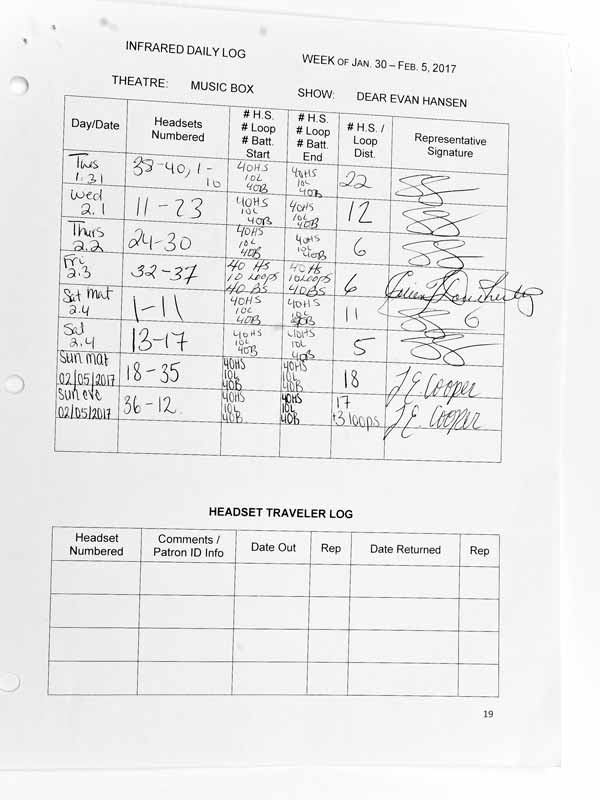 INFRARED DAILY LOG
WEEK OF JAN. 30 – FEB. 5, 2017
THEATRE: MUSIC BOX SHOW: DEAR EVAN HANSEN
Day/Date
Headsets
Numbered
# H.S.
# Loop
# Batt.
Start
# H.S.
# Loop
# Batt.
End
# H.S. /
Loop
Dist.
Representative
Signature
Tues
1.31
38-40, 1-
10
40HS
10L
40B
40HS
10L
40B
22
Wed
2.1
11-23
40HS
10L
40B
40HS
10L
40B
12
Thurs
2.2
24-30
40HS
10L
40B
40HS
10L
40B
6
Fri
2.3
32-37
40 HS
10 Loops
40 BS
40 HS
10 Loops
40BS
6
Sat mat
2.4
1-11
40HS
10L
40B
40HS
10L
40B
11
6
Sat
2.4
13-17
40HS
10L
40B
40HS
10L
40B
5
Sun mat
02/05/2017
18-35
40HS
10L
40B
40HS
10L
40B
18
J.E. Cooper
Sun eve
02/05/2017
36-12.
40HS
10L
40B
40HS
10L
40B
17
+3 loops
J.E. Cooper
HEADSET TRAVELER LOG
Headset
Numbered
Comments /
Patron ID Info
Date Out
Rep
Date Returned
Rep
19